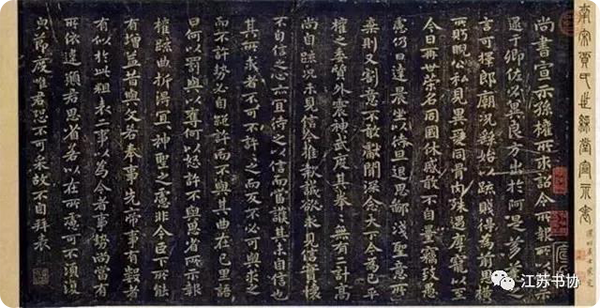 南宋賈氏世綵堂宣示表
尚書宣示孫權所求詔令所報所以博示
逮于卿佐必冀良方出於阿是芻蕘之
言可擇郎廟況繇始以疏賤得為前恩橫
所眄睨公私見異愛同骨肉殊遇厚寵以至
今日再世榮名同國休慼敢不自量竊致愚
慮仍日達晨坐以待旦退思鄙淺聖意所
棄則又割意不敢獻聞深念天下今為已平
權之委質外震神武度其拳拳無有二計高
尚自疏況未見信今推款誠欲求見信實懷
不自信之心亦宜待之以信而當護其未自信也
其所求者不可不許許之而反不必可與求之
而不許勢必自絕許而不與其曲在己里語
曰何以罰與以奪何以怒許不與思省所示報
權疏曲折得宜宜神聖之慮非今臣下所能
有增益昔與文若奉事先帝事有數者
有似於此粗表二事以為今者事勢尚當有
所依違願君思省若以在所慮可不須復
貌節度唯君恐不可采故不自拜表
江苏书协